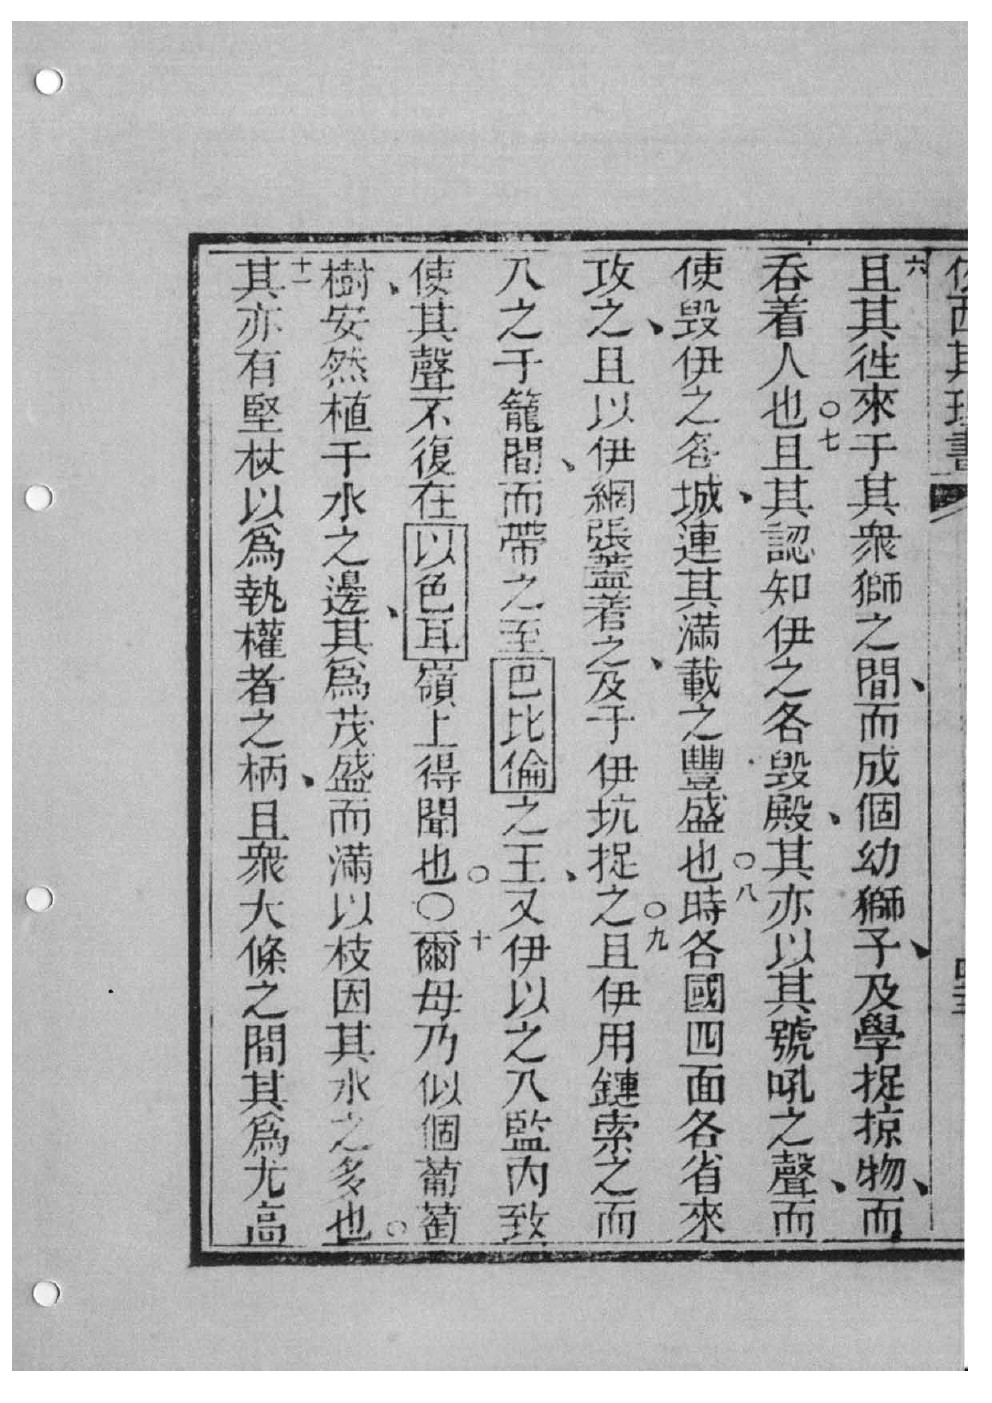 六且其徃來于其衆獅之間、而成個幼獅子、及學捉掠物、而
吞着人也○七且其認知伊之各毀殿、其亦以其號吼之聲、而
使毀伊之各城、連其滿載之豐盛也○八時各國四面各省來
攻之、且以伊網張蓋着之、及于伊坑捉之○九且伊用鏈索之而
入之于籠間、而帶之至巴比倫之王、又伊以之入監內致
使其聲不復在以色耳嶺上得聞也○○十爾母乃似個葡萄
樹、安然植于水之邊、其爲茂盛而滿以枝因其水之多也○
十一其亦有堅杖以爲執權者之柄、且衆大條之間其爲尤高